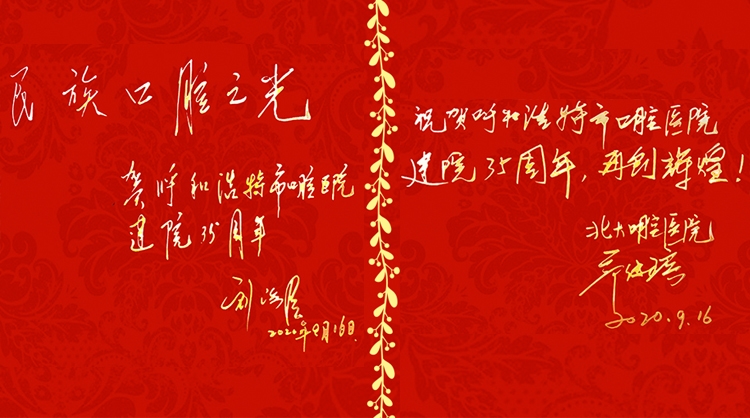 民族口腔之光
贺呼和浩特市口腔医院
建院35周年
2020年9月16日
祝贺呼和浩特市口腔医院
建院35周年，再创辉煌！
北大口腔医院
2020.9.16